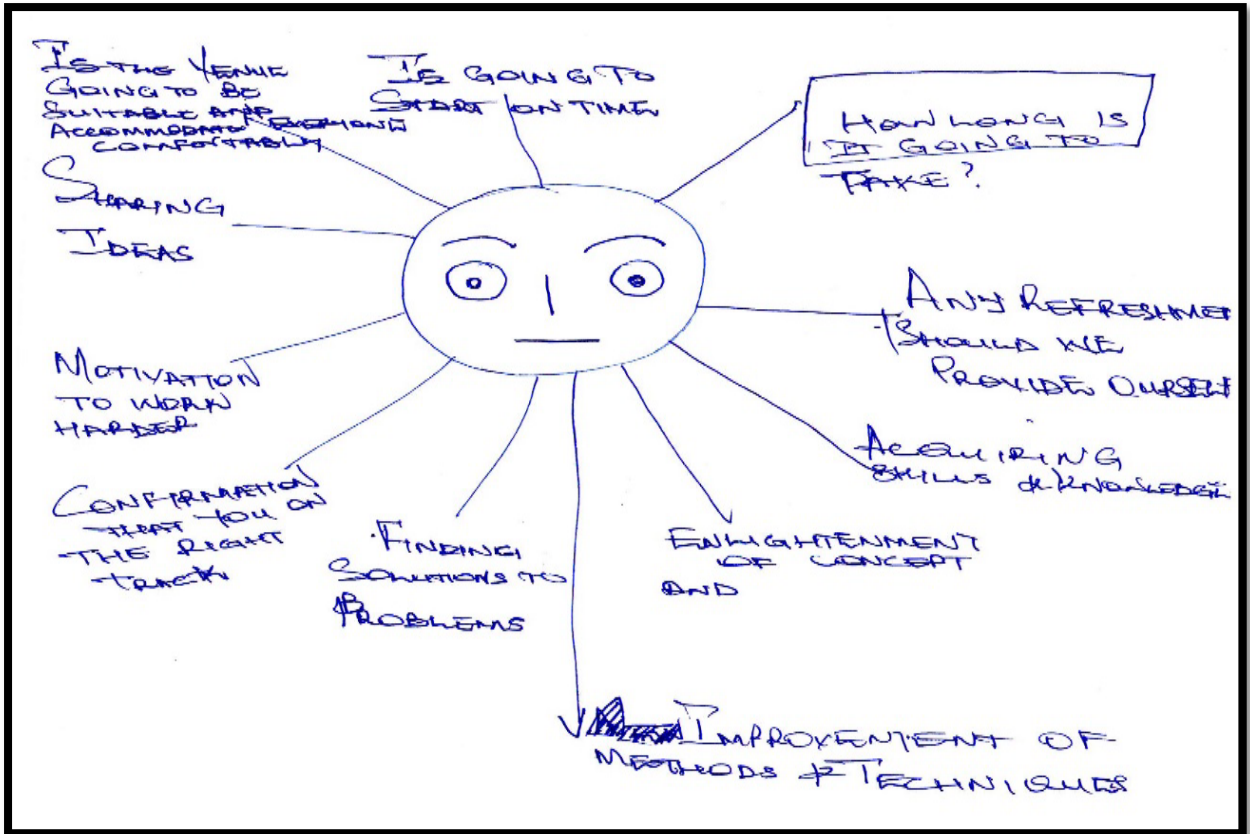 IS THE VENUE
GOING TO BE
SUITABLE AND
ACCOMMODATE EVERYONE
COMFORTABLY
IS GOING TO
START ON TIME
HOW LONG IS
IT GOING TO
TAKE?
SHARING
IDEAS
ANY REFRESHMEN
SHOULD WE
PROVIDE OURSELF
MOTIVATION
TO WORK
HARDER
ACQUIRING
SKILLS & KNOWLEDGE
CONFIRMATION
THAT YOU ON
THE RIGHT
TRACK
FINDING
SOLUTIONS TO
PROBLEMS
ENLIGHTENMENT
OF CONCEPT
AND
IMPROVEMENT OF
METHODS & TECHNIQUES